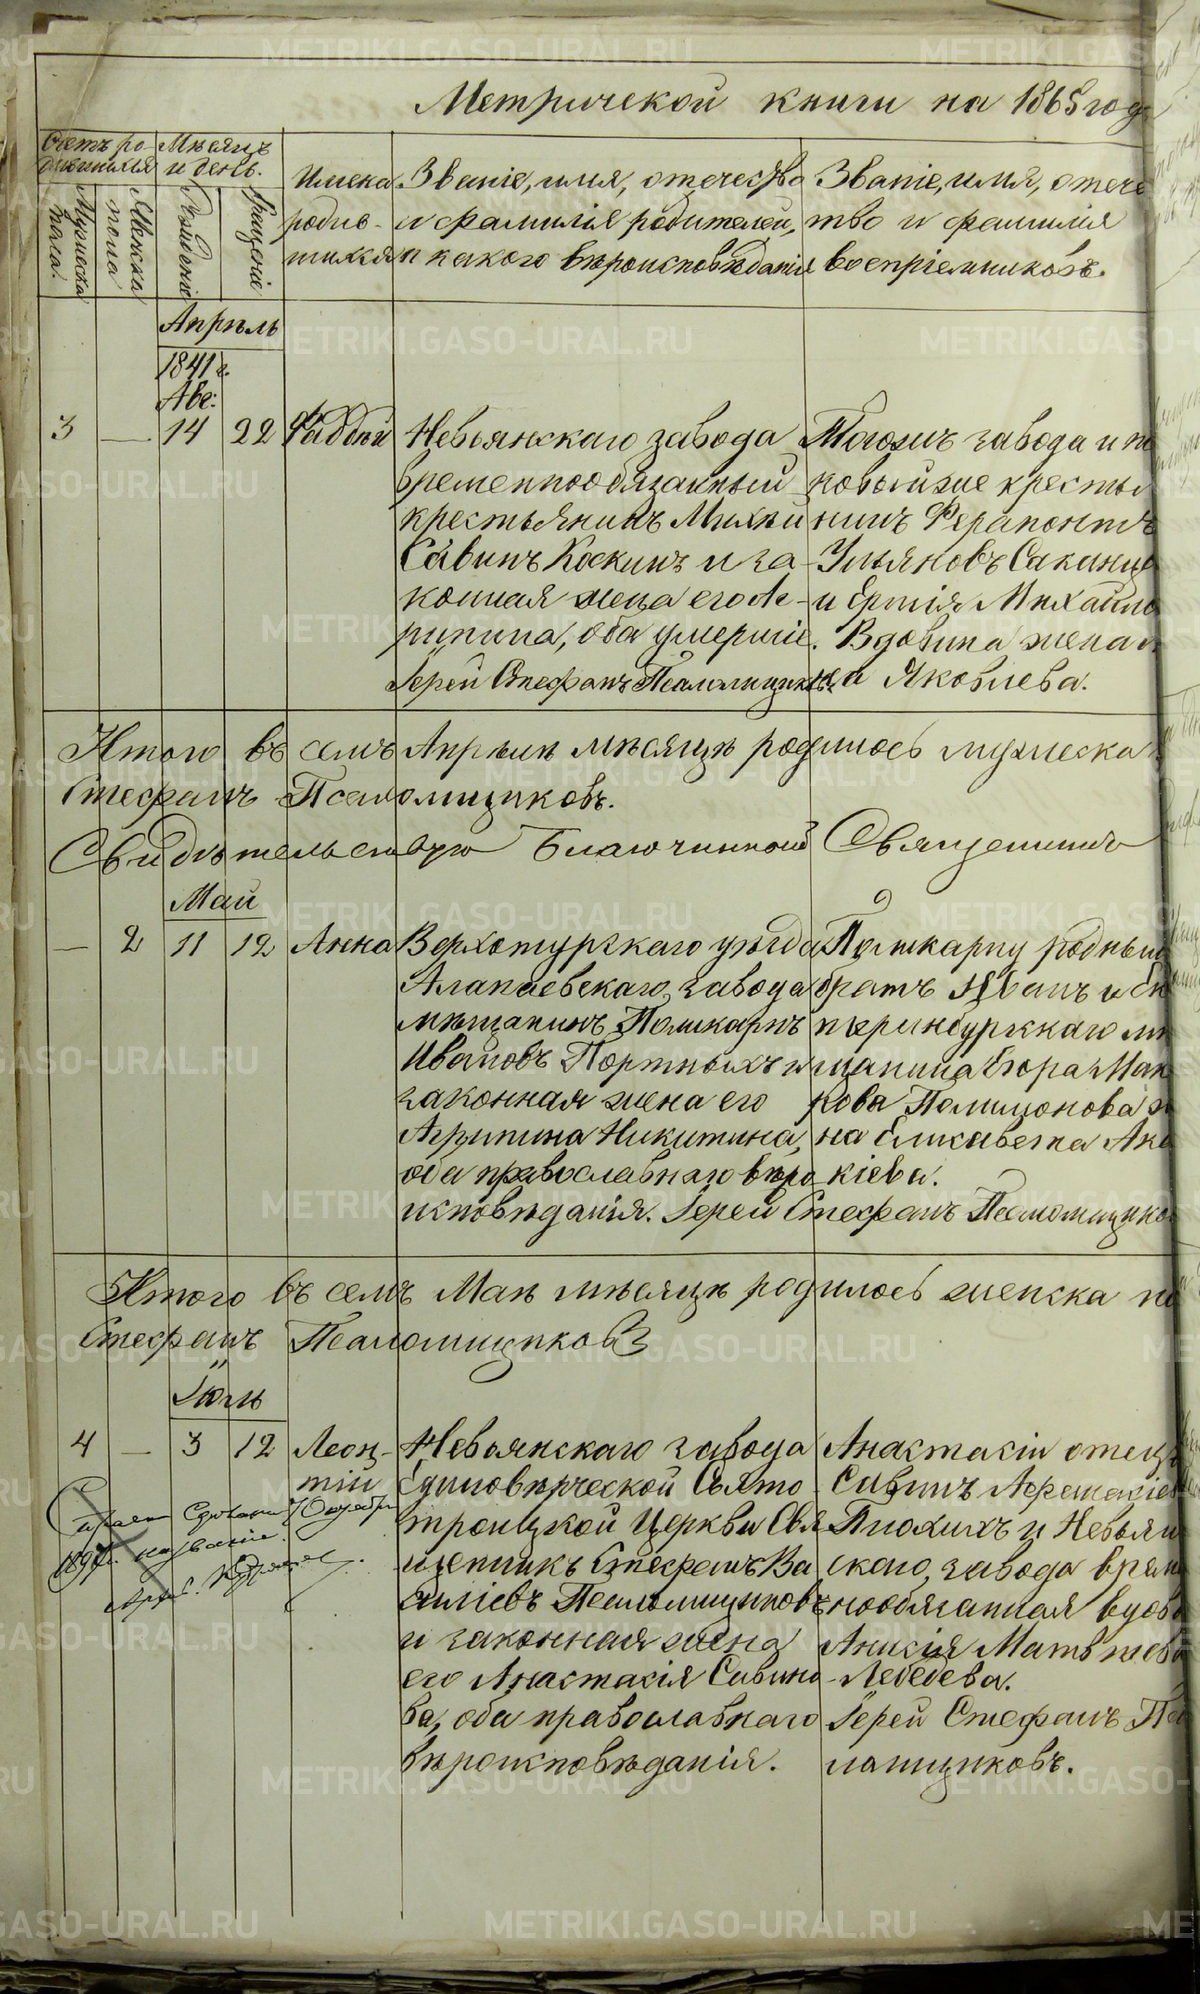 Метрической книги на 1865 год
Счетъ ро-
дившихся
Мѣсяцъ
и день.
Мужеска
пола.
Женска
пола
Рожденіе
Крещеніе
Имена
родив-
шихся
Званіе, имя, отечество
и фамилія родителей,
и какого вѣроисповѣданія
Званіе, имя, отече
тво и фамилія
воспріемниковъ.
Апрѣль
1841 г.
Авг:
3 — 14 22 Фаддѣй
Невьянскаго завода
временнообязанный
крестьянинъ Михѣй
Савинъ Коскинъ и за-
конная жена его Аг-
рипина, оба умершіе.
Іерей Стефанъ Псаломщиковъ
Тогожъ завода и
новый же крестья
нинъ Ферапонтъ
Ульяновъ
и Михайло
Вдовина жена
на Яковлева.
Итого въ семъ Апрѣлѣ мѣсяцѣ родилось мужеска
Стефанъ Псаломщиковъ.
Свидѣтельствую Благочинной Священникъ
Май
— 2 11 12 Анна
Верхотурскаго уѣзда
Алапаевскаго завода
мѣщанинъ Поликарпъ
Ивановъ Портныхъ и
законная жена его
Агрипина Никитина,
оба православнаго вѣро
исповѣданія. Іерей Стефанъ Псаломщиков
Поликарпу родный
братъ Иванъ и Ек
теринбургскаго мѣ
щанина Егора Мак
рова Полимонова же
на Елисавета Ака
кіева.
Итого въ семъ Маѣ мѣсяцѣ родилось женска по
Стефанъ Псаломщиковъ
Іюль
4 — 3 12 Леон-
тій
Невьянскаго завода
Единовѣрческой Свято
троицкой Церкви Свя
щенникъ Стефанъ Ва
силіевъ Псаломщиковъ
и законная жена
его Анастасія Савино
ва, оба православнаго
вѣроисповѣданія.
Анастасіи отецъ
Савинъ
и Невьян
скаго завода време
ннообязанная вдова
Анисія Матвѣева
Лебедева.
Іерей Стефанъ Пса
ломщиковъ.
1897
METRIKI.GASO-URAL.RU